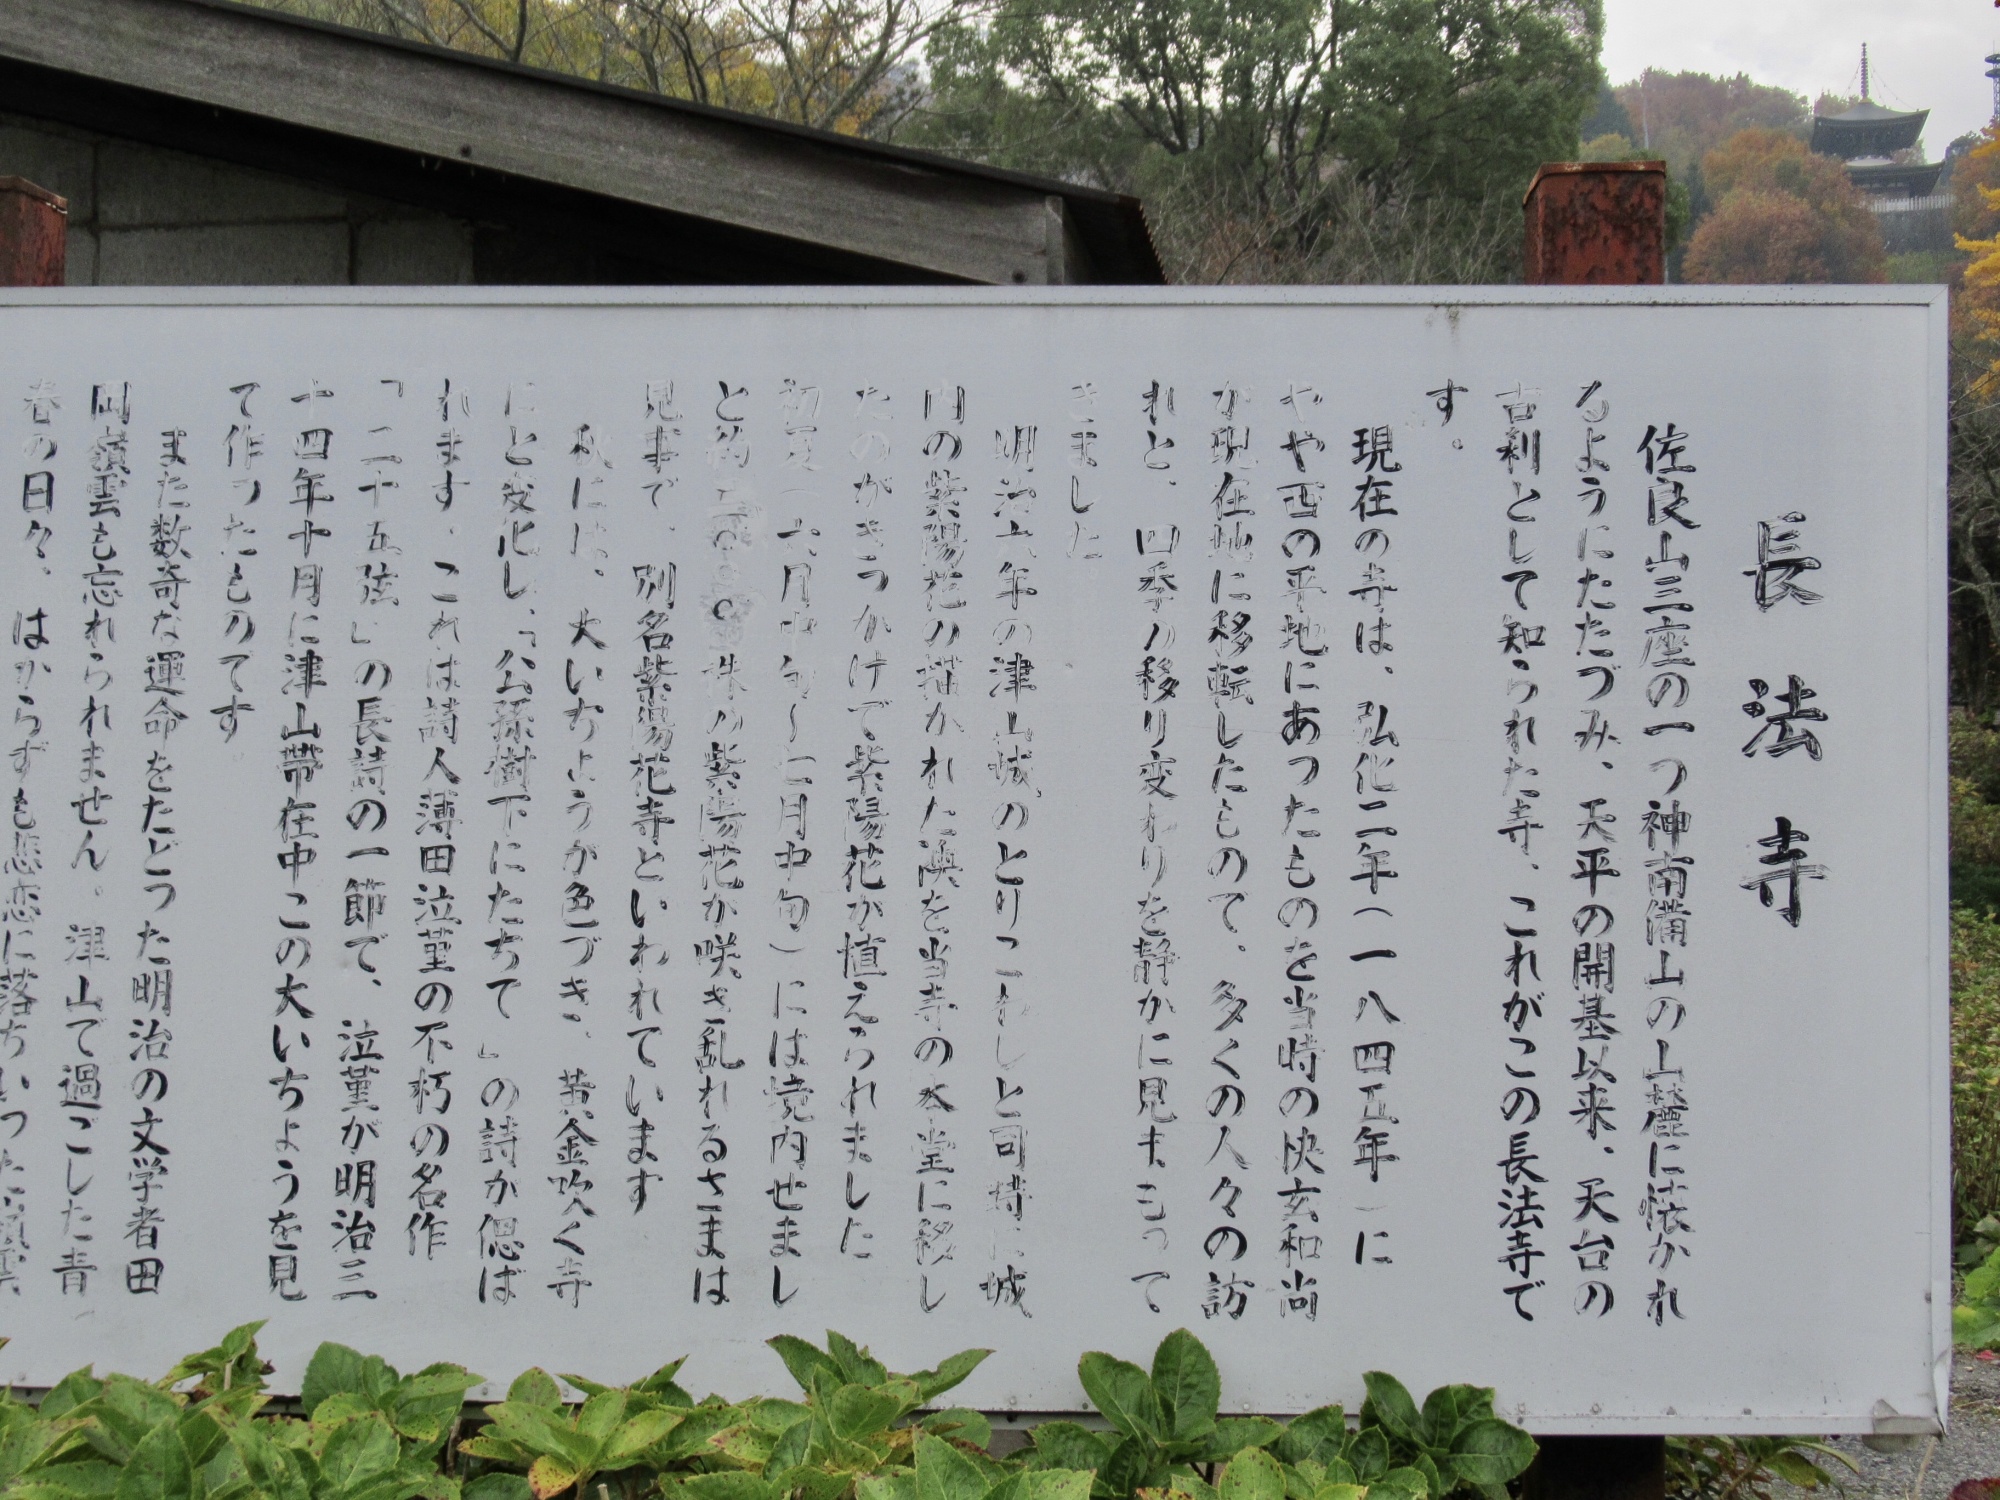 長法寺
佐良山三座の一つ神南備山の山麓に懐かれ
るようにたたづみ、天平の開基以来、天台の
古刹として知られた寺、これがこの長法寺で
す。
現在の寺は、弘化二年(一八四五年)に
やや西の平地にあったものを当時の快玄和尚
が現在地に移転したもので、多くの人々の訪
れと、四季の移り変わりを静かに見まもって
きました
明治六年の津山城のとりこわしと同時に城
内の紫陽花の描かれた襖を当寺の本堂に移し
たのがきっかけで紫陽花が植えられました
初夏(六月中旬〜七月中旬)には境内せまし
と約三〇〇〇株の紫陽花が咲き乱れるさまは
見事で、別名紫陽花寺といわれています
秋には、大いちょうが色づき、黄金吹く寺
にと変化し、「公孫樹下にたちて」の詩が偲ば
れます。これは詩人薄田泣菫の不朽の名作
「二十五弦」の長詩の一節で、泣菫が明治三
十四年十月に津山帶在中この大いちょうを見
て作ったものてす
また数奇な運命をたどった明治の文学者田
岡嶺雲も忘れられません。津山で過ごした青
春の日々、はからずも悲恋に落ちいった嶺雲